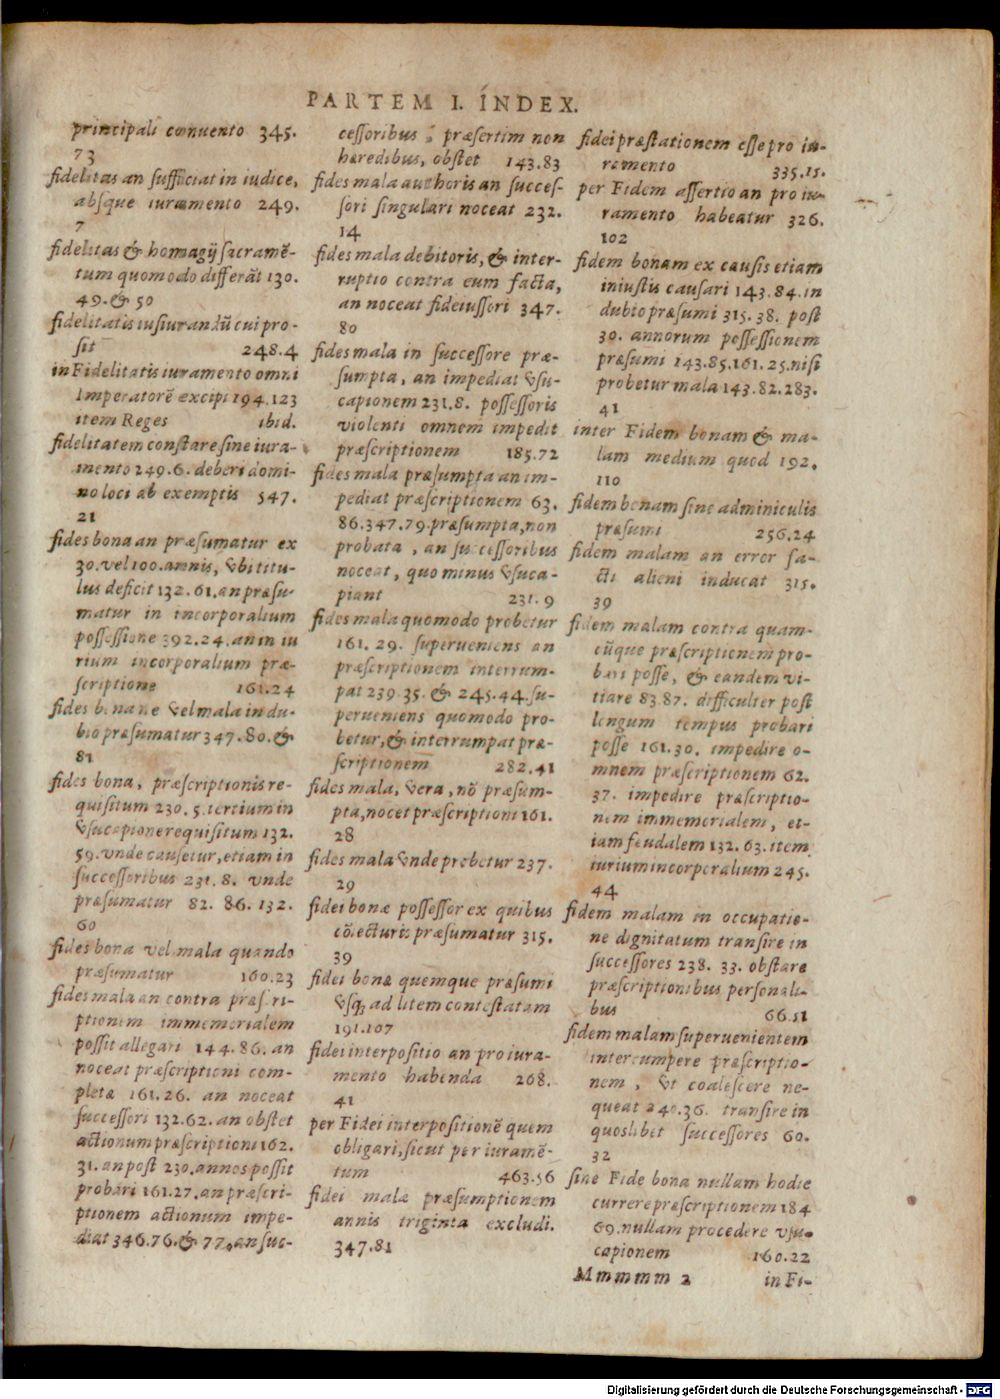 PARTEM I. INDEX.
principali conuento 345.
73
fidelitas an sufficiat in iudice,
absque iuramento 249.
7
fidelitas & homagij sacramē-
tum quomodo differāt 130.
49. & 50
fidelitatis iusiurandū cui pro-
sit 248.4
in Fidelitatis iuramento omni
Imperatorē excipi 194.123
item Reges ibid.
fidelitatem constare sine iura-
mento 249.6. deberi domi-
no loci ab exemptis 547.
21
fides bona an præsumatur ex
30. vel 100. annis, vbi titu-
lus deficit 132.61. an præsu-
matur in incorporalium
possessione 392.24. an in iu
rium incorporalium præ-
scriptione 161.24
fides bona ne vel mala in du-
bio præsumatur 347.80. &
81
fides bona, præscriptionis re-
quisitum 230.5. tertium in
vsucapione requisitum 132.
59. vnde causetur, etiam in
successoribus 231.8. vnde
præsumatur 82. 86. 132.
60
fides bona vel mala quando
præsumatur 160.23
fides mala an contra præscri-
ptionem immemorialem
possit allegari 144.86. an
noceat præscriptioni com-
pletæ 161.26. an noceat
successori 132.62. an obstet
actionum præscriptioni 162.
31. an post 230. annos possit
probari 161.27. an præscri-
ptionem actionum impe-
diat 346.76. & 77. an suc-
cessoribus, præsertim non
hæredibus, obstet 143.83
fides mala authoris an succes-
sori singulari noceat 232.
14
fides mala debitoris, & inter-
ruptio contra eum facta,
an noceat fideiussori 347.
80
fides mala in successore præ-
sumpta, an impediat vsu-
capionem 231.8. possessoris
violenti omnem impedit
præscriptionem 185.72
fides mala præsumpta an im-
pediat præscriptionem 63.
86.347.79. præsumpta, non
probata, an successoribus
noceat, quo minus vsuca-
piant 231.9
fides mala quomodo probetur
161.29. superueniens an
præscriptionem interrum-
pat 239.35. & 245.44. su-
perueniens quomodo pro-
betur, & interrumpat præ-
scriptionem 282.41
fides mala, vera, nō præsum-
pta, nocet præscriptioni 161.
28
fides mala vnde probetur 237.
29
fidei bonæ possessor ex quibus
cōiecturis præsumatur 315.
39
fidei bonæ quemque præsumi
vsq; ad litem contestatam
191.107
fidei interpositio an pro iura-
mento habenda 268.
41
per Fidei interpositionē quem
obligari, sicut per iuramē-
tum 463.56
fidei malæ præsumptionem
annis triginta excludi.
347.81
fidei præstationem esse pro iu-
ramento 335.15.
per Fidem assertio an pro iu-
ramento habeatur 326.
102
fidem bonam ex causis etiam
iniustis causari 143.84. in
dubio præsumi 315.38. post
30. annorum possessionem
præsumi 143.85.161.25. nisi
probetur mala 143.82.283.
41
inter Fidem bonam & ma-
lam medium quod 192.
110
fidem bonam sine adminiculis
præsumi 256.24
fidem malam an error fa-
cti alieni inducat 315.
39
fidem malam contra quam-
cūque præscriptionem pro-
bari posse, & eandem vi-
tiare 83.87. difficulter post
longum tempus probari
posse 161.30. impedire o-
mnem præscriptionem 62.
37. impedire præscriptio-
nem immemorialem, et-
iam feudalem 132.63. item
iurium incorporalium 245.
44
fidem malam in occupatio-
ne dignitatum transire in
successores 238.33. obstare
præscriptionibus personali-
bus 66.51
fidem malam superuenientem
interrumpere præscriptio-
nem, vt coalescere ne-
queat 240.36. transire in
quoslibet successores 60.
32
sine Fide bona nullam hodie
currere præscriptionem 184
69. nullam procedere vsu-
capionem 160.22
Mmmmm 2 in Fi-
Digitalisierung gefördert durch die Deutsche Forschungsgemeinschaft - DFG